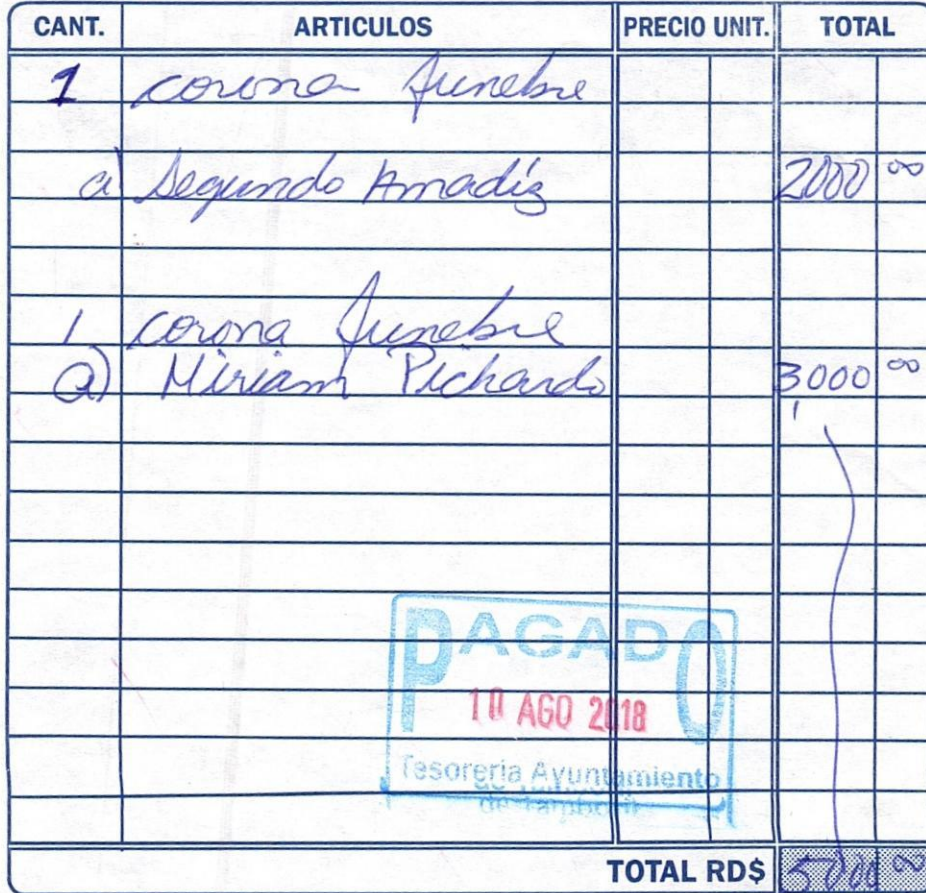 CANT. ARTICULOS PRECIO UNIT. TOTAL
1 corona funebre
a Segundo Amadiz 2000 00
1 corona funebre
a) Miriam Pichardo 3000 00
PAGADO
10 AGO 2018
Tesoreria Ayuntamiento
de Tamboril
TOTAL RD$ 5000 00